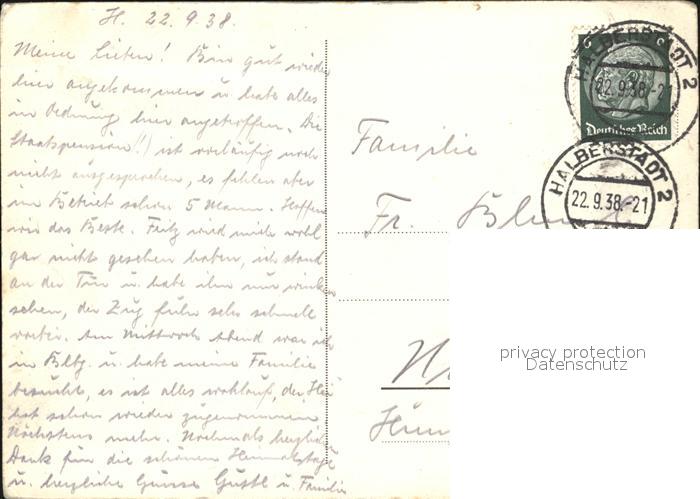 H. 22.9.38.
Meine Lieben! Bin gut wieder
hier angekommen u. habe alles
in Ordnung hier angetroffen. Die
Staatspension(!) ist vorläufig noch
nicht ausgesprochen, es fehlen aber
im Betrieb schon 5 Mann. Hoffen
wir das Beste. Fritz wird mich wohl
gar nicht gesehen haben, ich stand
an der Tür u. habe ihm nur winken
sehen, der Zug fuhr sehr schnell
vorbei. Am Mittwoch Abend war ich
in Blbg. u. habe meine Familie
besucht, es ist alles wohlauf, der
hat schon wieder zugenommen
Nächstens mehr. Nochmals herzlichen
Dank für die schönen Heimatstage
u. herzliche Grüsse Gustl u. Familie
Familie
Fr.
HALBERSTADT 2
22.9.38.-21
Deutsches Reich
HALBERSTADT 2
22.9.38.-21
privacy protection
Datenschutz